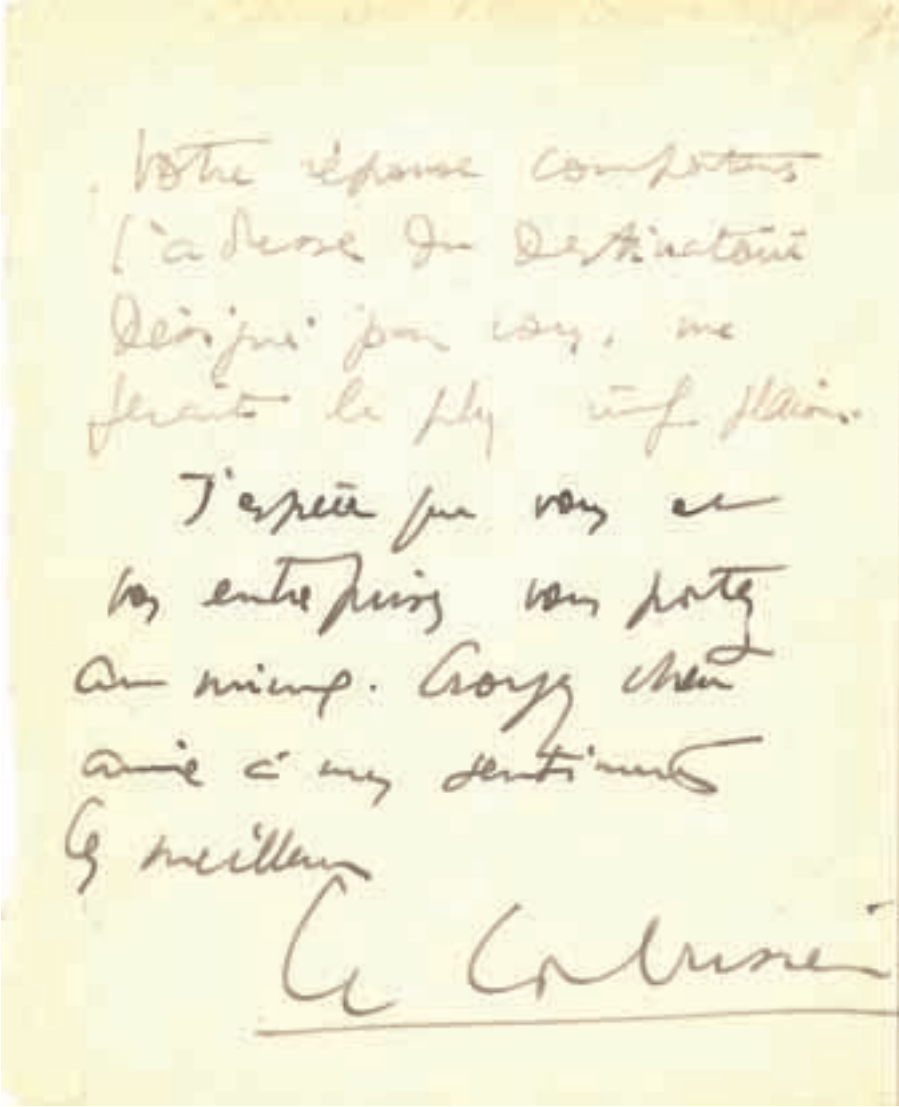 Votre réponse comportant
l'adresse du destinataire
désigné par vous, me
ferait le plus vif plaisir.
J'espère que vous et
vos entreprises vous portez
au mieux. Croyez chère
amie à mes sentiments
les meilleurs
Le Corbusier